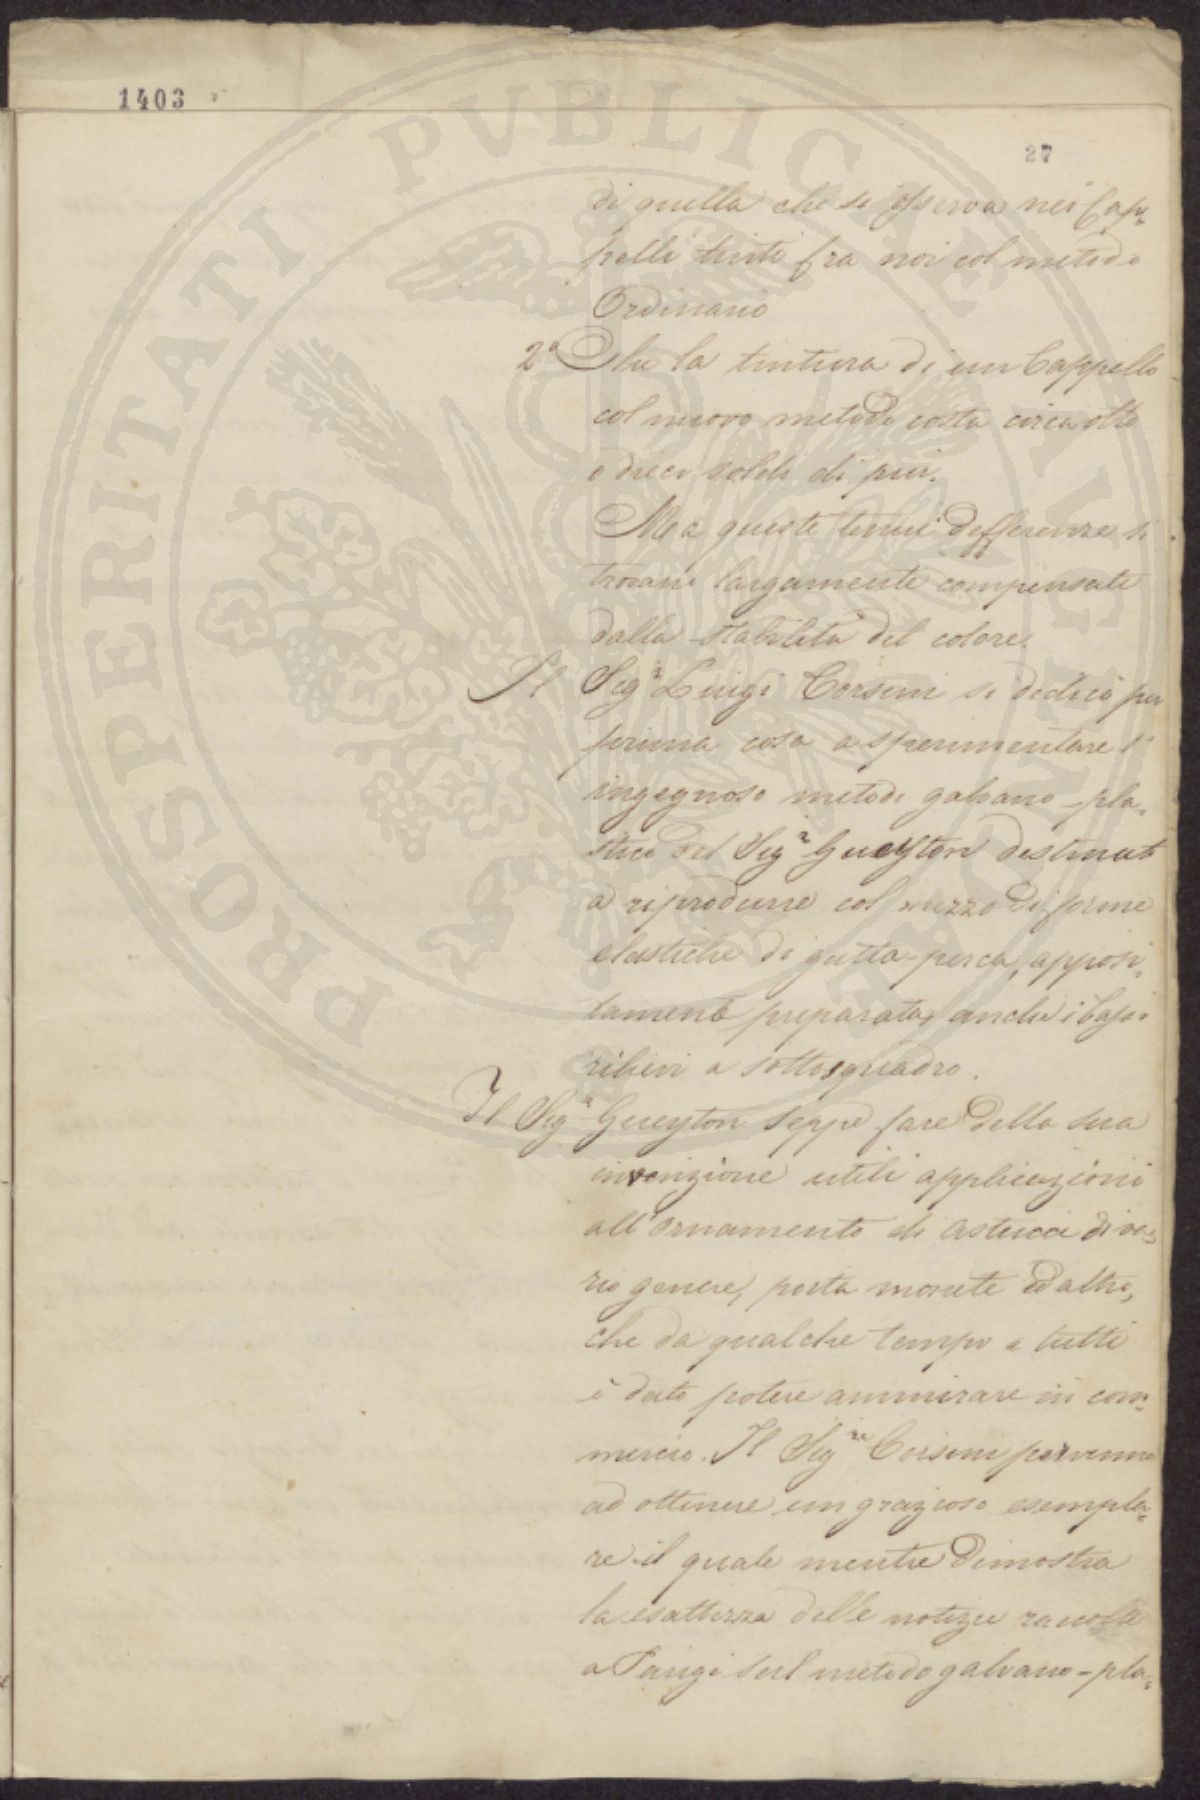 1403
27
di quella che si osserva nei Cap=
pelli tinti fra noi col metodo
Ordinario
2º Che la tintura di un Cappello
col nuovo metodo costa circa otto
o dieci soldi di più.
Ma queste tenui differenze si
trovano largamente compensate
dalla stabilità del colore.
Il Sigr Luigi Corsini si dedicò per
prima cosa a sperimentare l'
ingegnoso metodo galvano-pla=
stico del Sigr Gueyton destinato
a riprodurre col mezzo di forme
elastiche di gutta-perca, apposi=
tamente preparata, anche i bassi
rilievi a sottosquadro.
Il Sigr Gueyton seppe fare della sua
invenzione utili applicazioni
all'ornamento di astucci di va=
rio genere, porta monete ed altro,
che da qualche tempo a tutti
è dato potere ammirare in com=
mercio. Il Sigre Corsini pervenne
ad ottenere un grazioso esempla=
re il quale mentre dimostra
la esattezza delle notizie raccolte
a Parigi sul metodo galvano-pla=
PROSPERITATI PVBLICAE AVGENDAE